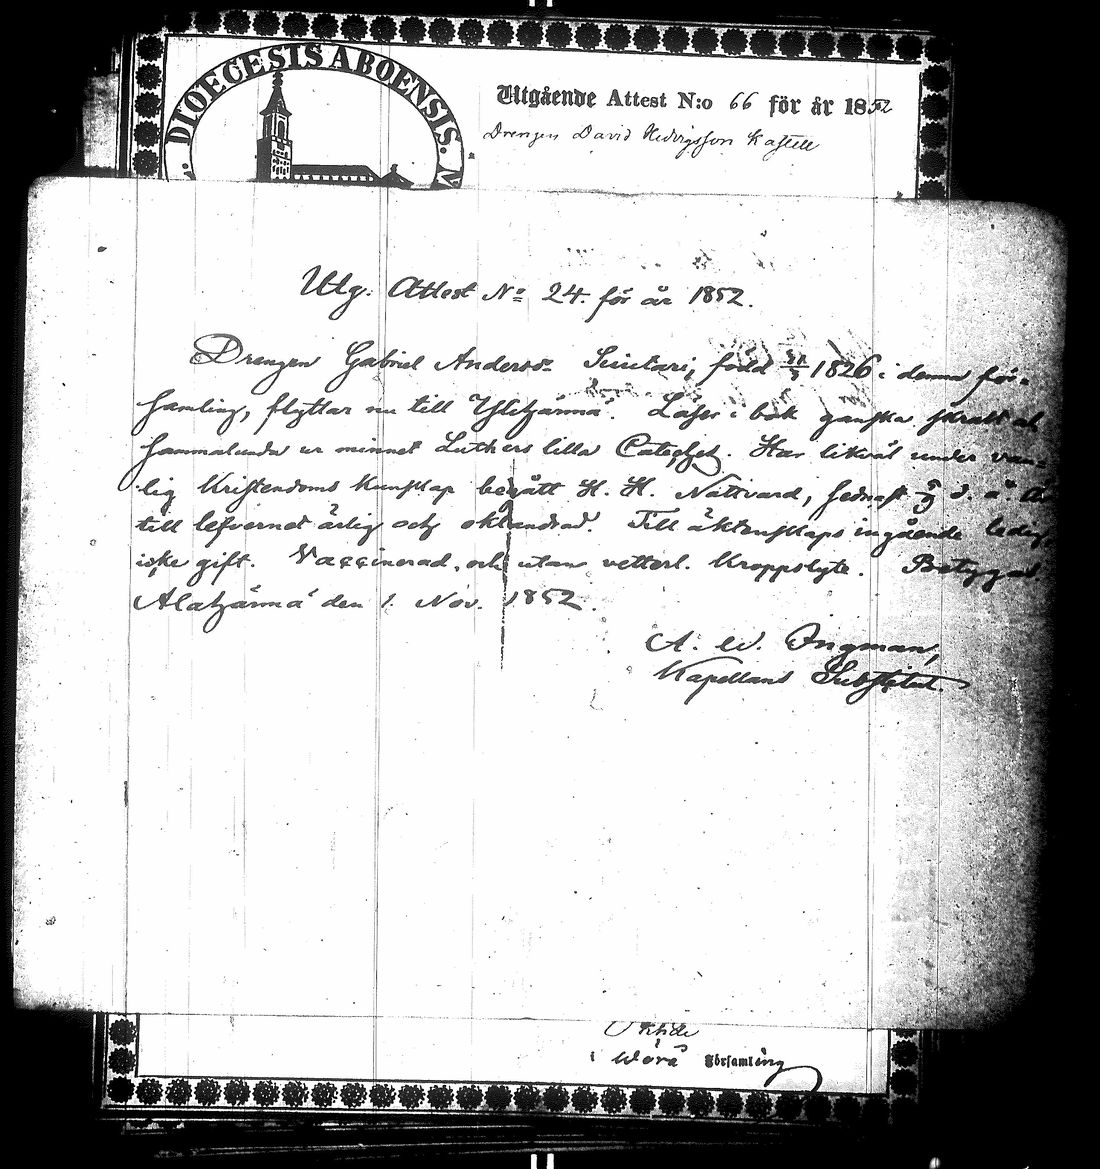 DIOECESIS ABOENSIS.
Utgående Attest N:o 66 för år 1852
Drengen David Hedvigsson Kastell
Utg. Attest No 24. för år 1852.
Drengen Gabriel Anderss: född 1826 i denna för-
samling, flyttar nu till Ylihärmä. Läser i bok ganska skralt och
sammalunda ur minnet Luthers lilla Cateches. Har likväl under van-
lig Kristendoms kunskap begått H. H. Nattvard, sednast d. å. Är
till lefvernet ärlig och oklandrad. Till äktenskaps ingående ledig,
icke gift. Vaccinerad, och utan vetterl. Kroppslyte. Betygas
Alahärmä den 1. Nov. 1852.
A. W. Ingman,
Kapellans Substitut.
i Wörå Församling